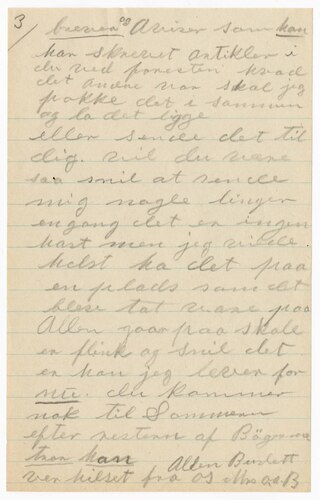 3/ breven og Aviser som han
har skrevet artikler i
du ved foresten hvad
det andre var skal jeg
pakke det i sammen
og la det ligge
eller sende det til
dig. vil du være
saa snil at sende
mig nogle linger
engang det er ingen
hast men jeg vilde
helst ha det paa
en plads som det
blese tat vare paa
Allen gaar paa skole
er flink og snil det
er han jeg lever for
nu. du kommer
nok til Sommeren
efter resten af Bøgerne
tror han Allen Burlett
ver hilset fra os Mrs